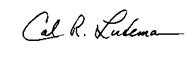 Cal R. Ludeman